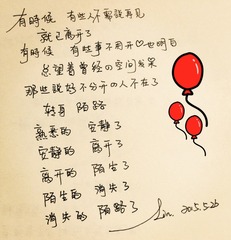 有時候 有些人不需說再見
就已離開了
有時候 有些事不用开口也明白
怎望着曾經の空间發呆
那些說好不分开の人不在了
转身 陌路
熟悉的 安静了
安静的 离开了
离开的 陌生了
陌生的 消失了
消失的 陌路了
2015.5.26